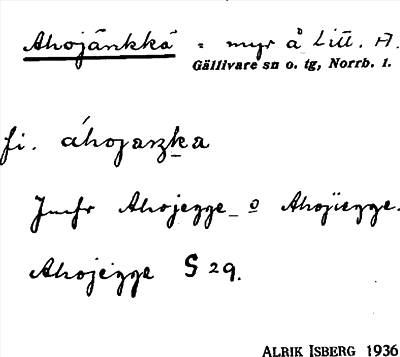 Ahojänkkä = myr å Litt. A.
Gällivare sn o. tg, Norrb. l.
fi. áhojaŋka
Jmfr Ahojegge o Ahojiegge.
Ahojegge § 29.
ALRIK ISBERG 1936